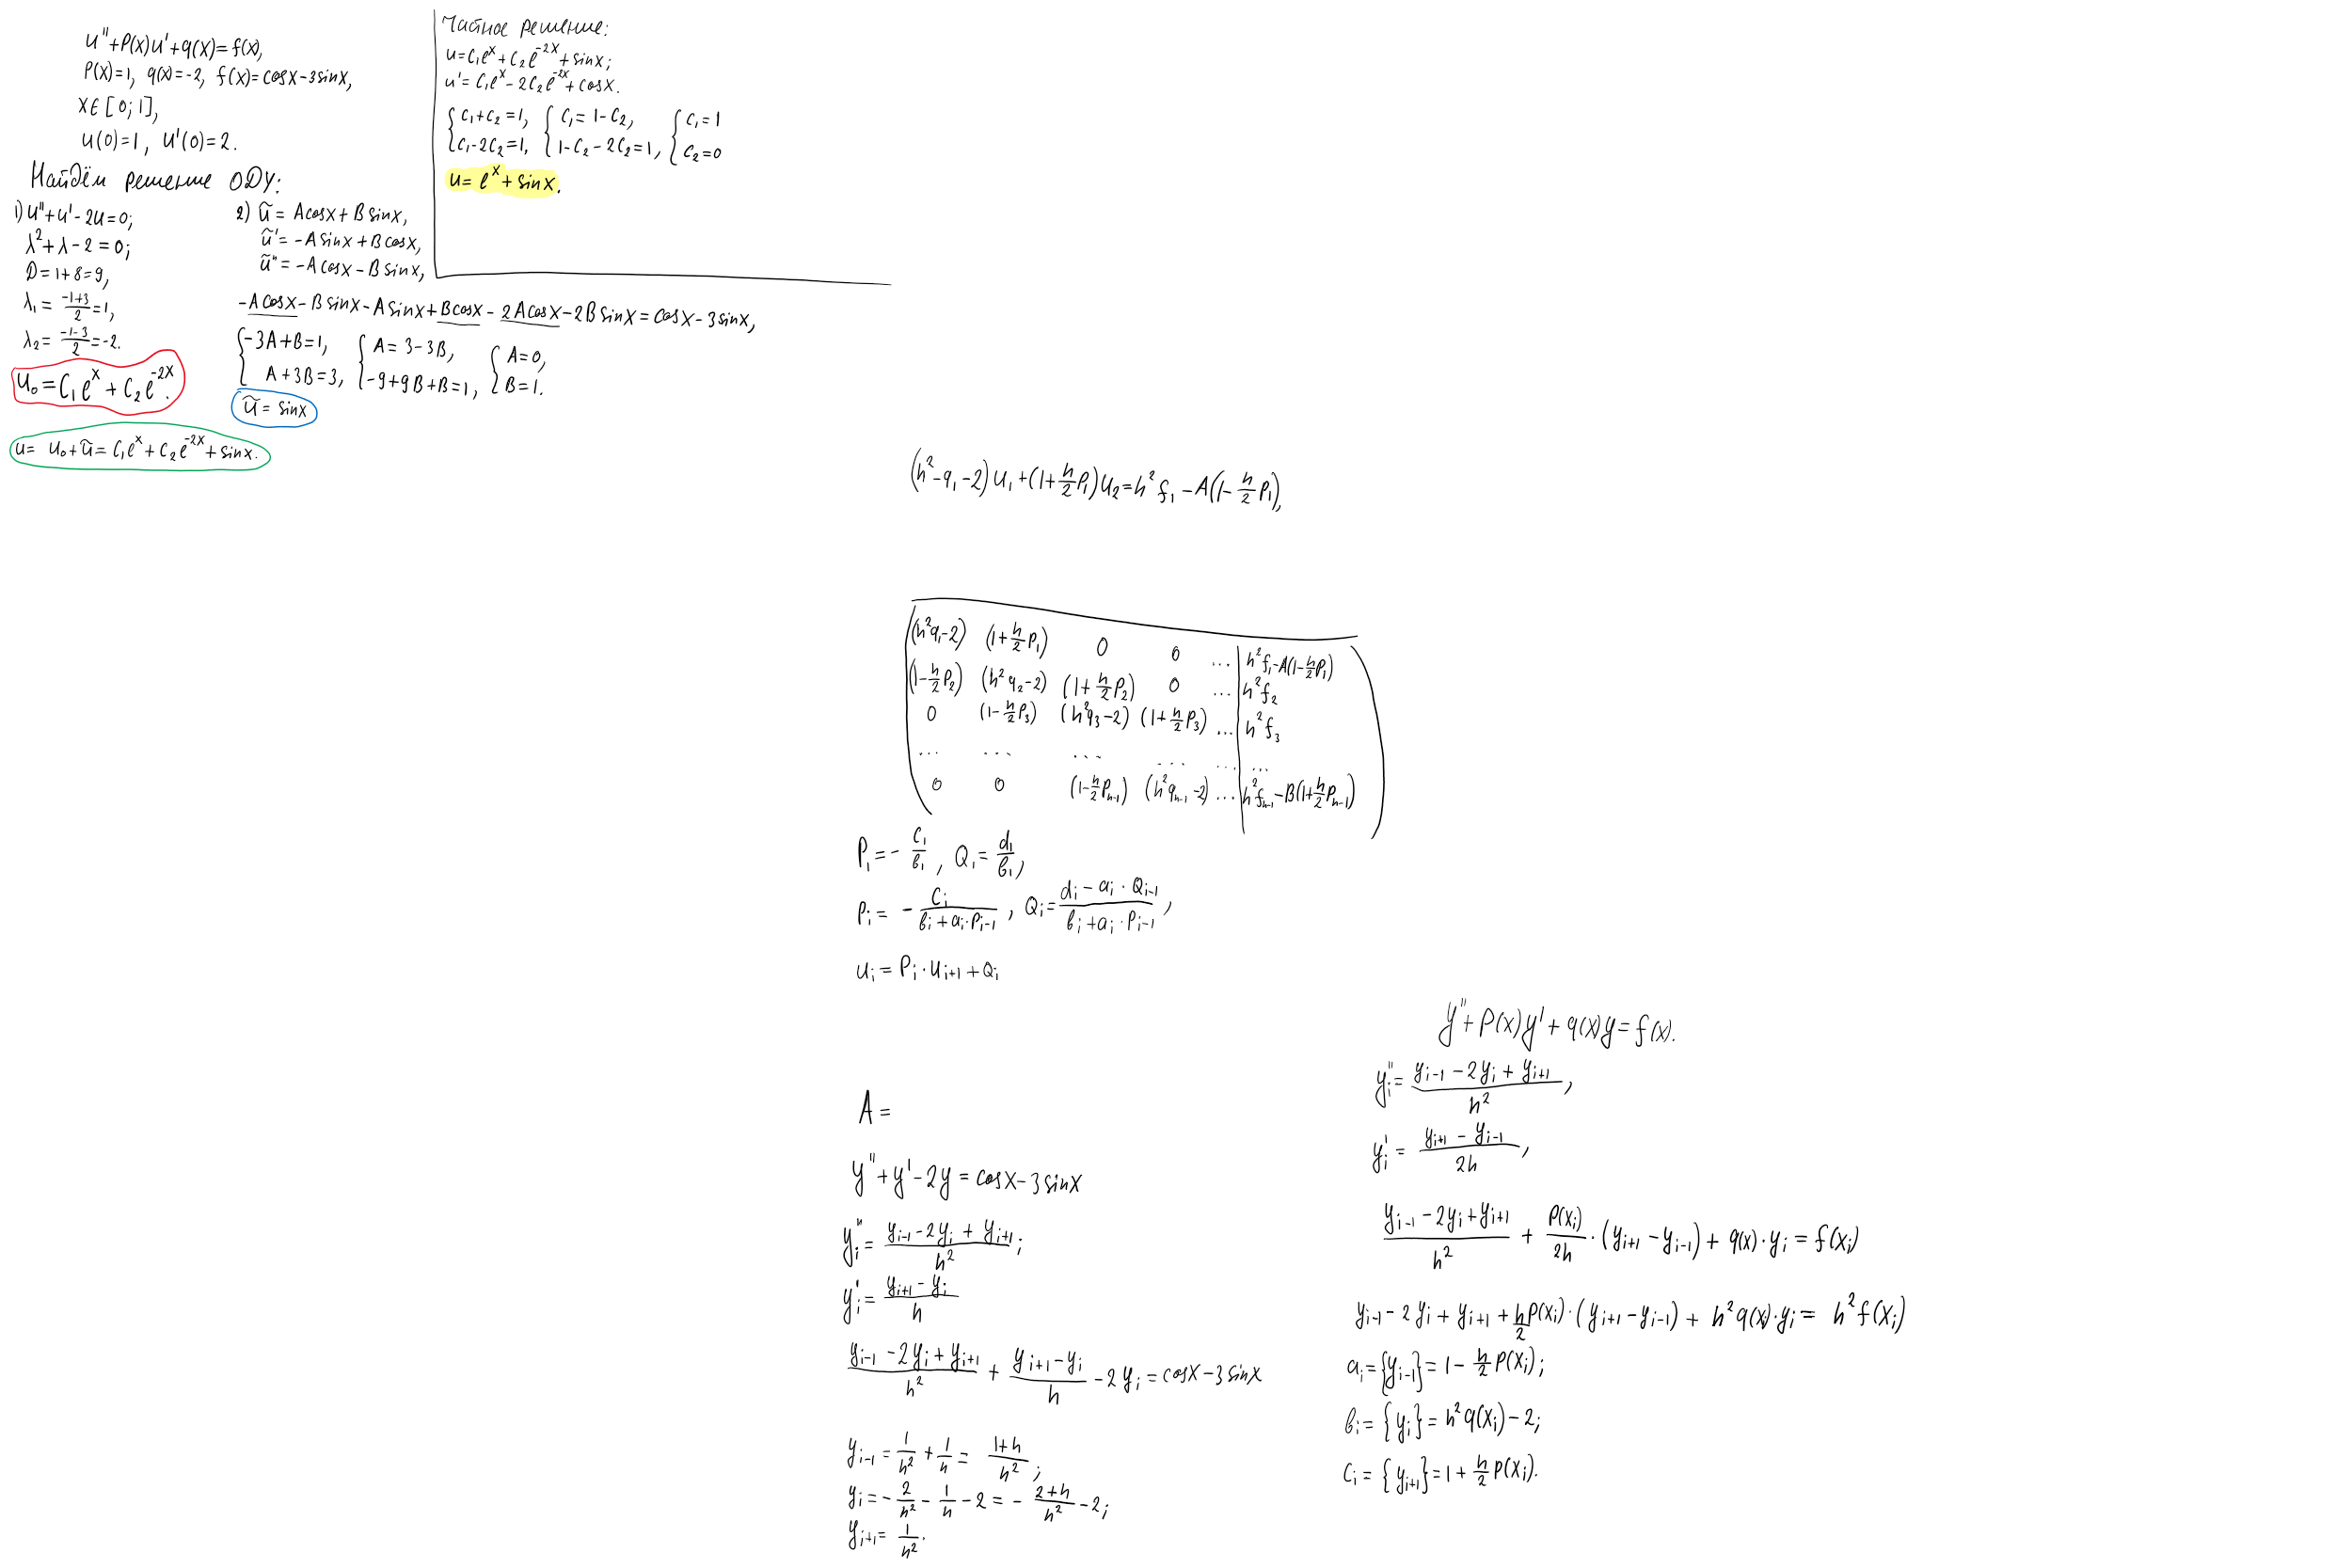 u''+p(x)u'+q(x)=f(x),
p(x)=1, q(x)=-2, f(x)=cosx-3sinx,
x∈[0;1],
u(0)=1, u'(0)=2.
Найдём решение ОДУ:
1) u''+u'-2u=0;
λ²+λ-2=0;
D=1+8=9,
λ₁=(-1+3)/2=1,
λ₂=(-1-3)/2=-2.
u₀=C₁e^x+C₂e^(-2x).
2) ũ=Acosx+Bsinx,
ũ'=-Asinx+Bcosx,
ũ''=-Acosx-Bsinx,
-Acosx-Bsinx-Asinx+Bcosx-2Acosx-2Bsinx=cosx-3sinx,
{-3A+B=1, {A=3-3B, {A=0,
{A+3B=3, {-9+9B+B=1, {B=1.
ũ=sinx
u=u₀+ũ=C₁e^x+C₂e^(-2x)+sinx.
Частное решение:
u=C₁e^x+C₂e^(-2x)+sinx;
u'=C₁e^x-2C₂e^(-2x)+cosx.
{C₁+C₂=1, {C₁=1-C₂, {C₁=1
{C₁-2C₂=1, {1-C₂-2C₂=1, {C₂=0
u=e^x+sinx.
(h²-q₁-2)u₁+(1+h/2 p₁)u₂=h²f₁-A(1-h/2 p₁),
(h²q₁-2) (1+h/2 p₁) 0 0 ... | h²f₁-A(1-h/2 p₁)
(1-h/2 p₂) (h²q₂-2) (1+h/2 p₂) 0 ... | h²f₂
0 (1-h/2 p₃) (h²q₃-2) (1+h/2 p₃) ... | h²f₃
... ... ... ... ... | ...
0 0 (1-h/2 pₙ₋₁) (h²qₙ₋₁-2) ... | h²fₙ₋₁-B(1+h/2 pₙ₋₁)
P₁=-c₁/b₁, Q₁=d₁/b₁,
Pᵢ=-cᵢ/(bᵢ+aᵢ·Pᵢ₋₁), Qᵢ=(dᵢ-aᵢ·Qᵢ₋₁)/(bᵢ+aᵢ·Pᵢ₋₁),
uᵢ=Pᵢ·uᵢ₊₁+Qᵢ
A=
y''+y'-2y=cosx-3sinx
yᵢ''=(yᵢ₋₁-2yᵢ+yᵢ₊₁)/h²;
yᵢ'=(yᵢ₊₁-yᵢ)/h
(yᵢ₋₁-2yᵢ+yᵢ₊₁)/h²+(yᵢ₊₁-yᵢ)/h-2yᵢ=cosx-3sinx
yᵢ₋₁=1/h²+1/h=(1+h)/h²;
yᵢ=-2/h²-1/h-2=-(2+h)/h²-2;
yᵢ₊₁=1/h².
y''+p(x)y'+q(x)y=f(x).
yᵢ''=(yᵢ₋₁-2yᵢ+yᵢ₊₁)/h²,
yᵢ'=(yᵢ₊₁-yᵢ₋₁)/2h,
(yᵢ₋₁-2yᵢ+yᵢ₊₁)/h²+p(xᵢ)/2h·(yᵢ₊₁-yᵢ₋₁)+q(x)·yᵢ=f(xᵢ)
yᵢ₋₁-2yᵢ+yᵢ₊₁+h/2 p(xᵢ)·(yᵢ₊₁-yᵢ₋₁)+h²q(xᵢ)·yᵢ=h²f(xᵢ)
aᵢ={yᵢ₋₁}=1-h/2 p(xᵢ);
bᵢ={yᵢ}=h²q(xᵢ)-2;
cᵢ={yᵢ₊₁}=1+h/2 p(xᵢ).